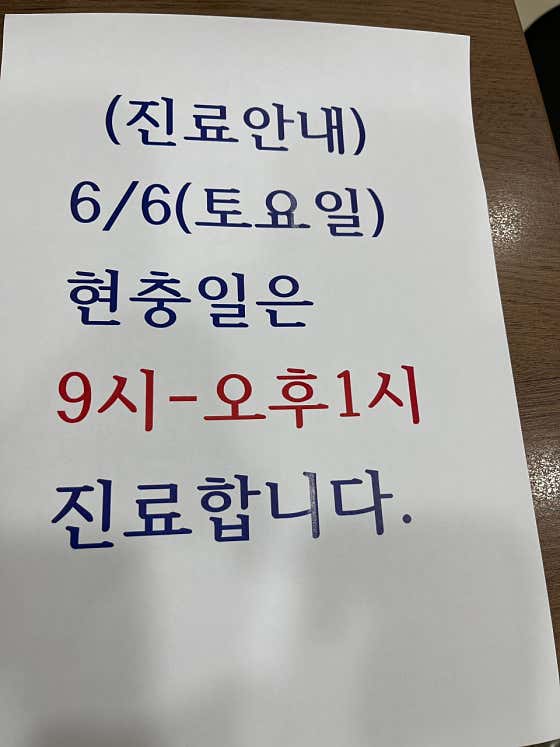 (진료안내)
6/6(토요일)
현충일은
9시-오후1시
진료합니다.